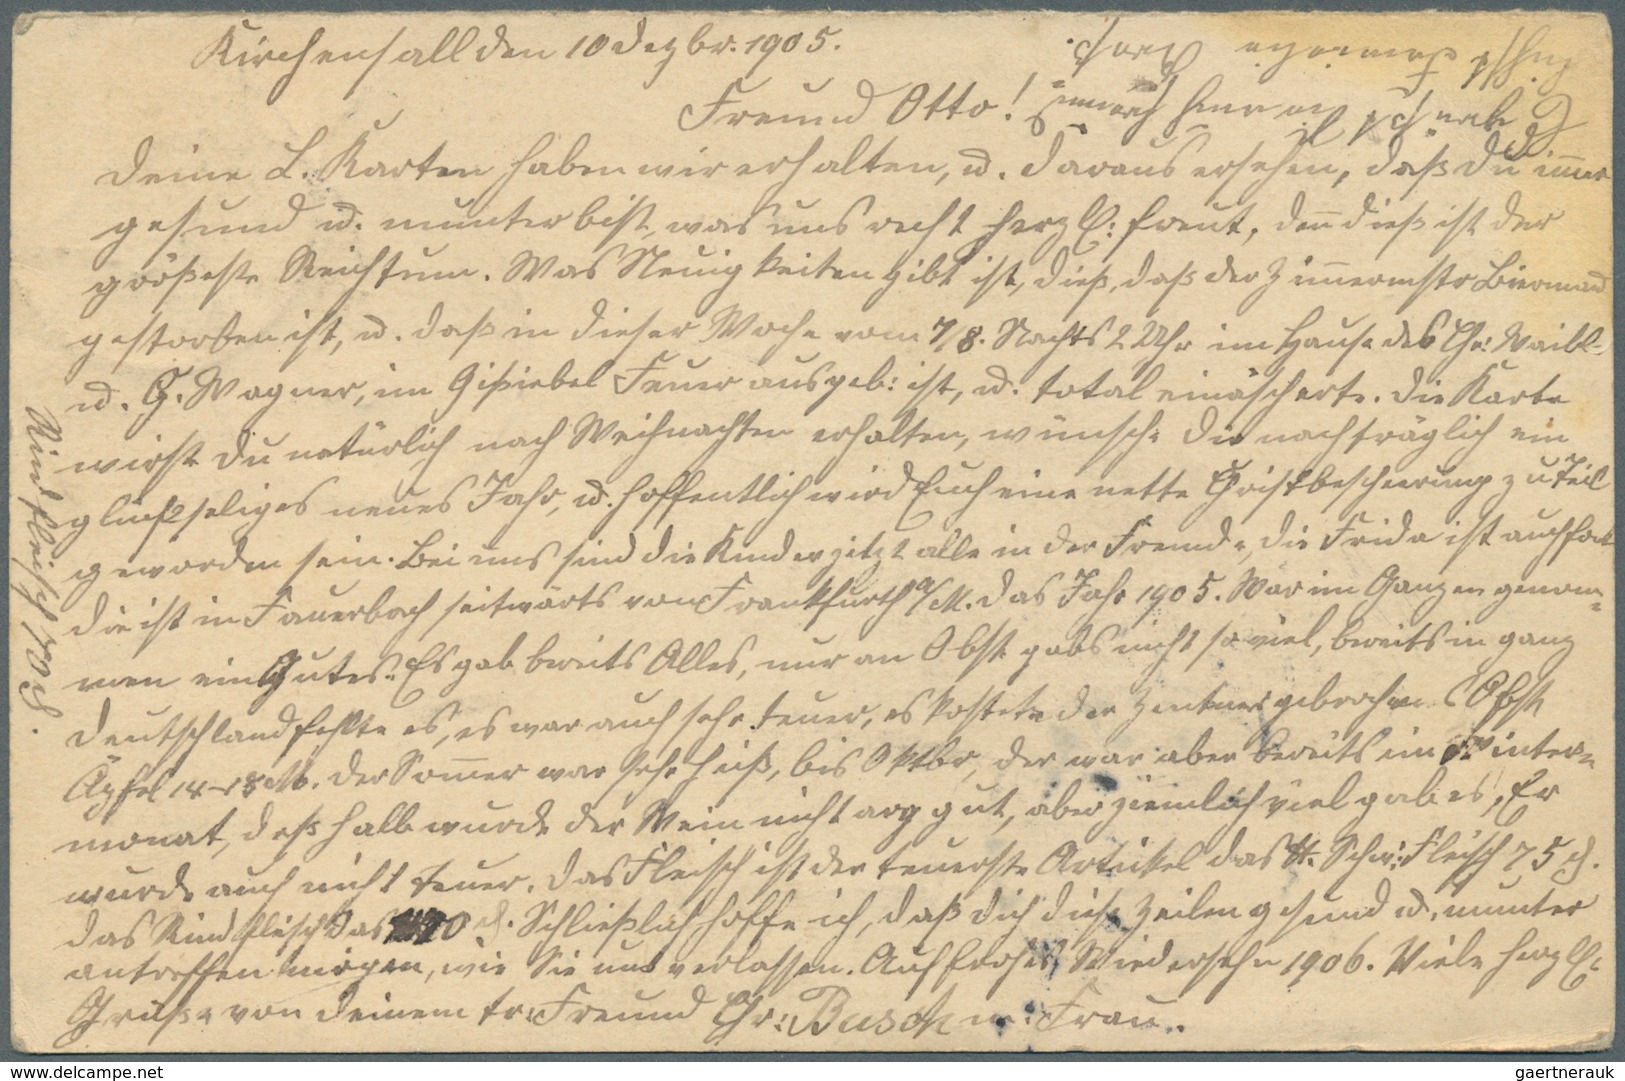 Kirchensall den 10 Dezbr. 1905.
Freund Otto!
Deine L. Karten haben wir erhalten, u. daraus ersehen, daß Du immer
gesund u. munter bist, was uns recht herzl: freut, denn dieß ist der
größeste Reichtum. Was Neuigkeiten gibt ist, dieß, daß der Zimmermstr Biermand
gestorben ist, u. daß in dieser Woche vom 7/8. Nachts 2 Uhr im Hause des Chr: Waibl-
u. G. Wagner, im Feuer ausgeb: ist, u. total einäscherte. Die Karte
wirst Du natürlich nach Weihnachten erhalten, wünsche Dir nachträglich ein
glückseliges neues Jahr, u. hoffentlich wird Euch eine nette Christbescheerung zu Teil
geworden sein. Bei uns sind die Kinder jetzt alle in der Fremde, die Frida ist auch fort
die ist in Fauerbach seitwärts von Frankfurth a/M. Das Jahr 1905. War im Ganzen genom-
men ein Gutes. Es gab bereits Alles, nur an Obst gabs nicht so viel, bereits in ganz
Deutschland fehlte es, es war auch sehr teuer, es kostete der Zentner gebrochene Obst
Äpfel 14-18 M. Der Sommer war sehr heiß, bis Oktbr, der war aber bereits ein Winter-
monat, deßhalb wurde der Wein nicht arg gut, aber ziemlich viel gab es, Er
wurde auch nicht teuer. Das Fleisch ist der teuerste Artickel das Schw: Fleisch 75 d.
das Rindfleisch das 70 d. Schließlich hoffe ich, daß Dich diese Zeilen gesund u. munter
antreffen mögen, wie Sie uns verlassen. Auf frohes Wiedersehn 1906. Viele herzl:
Grüße von Deinem tr: Freund Chr: Busch u: Frau.
Rindfleisch 70 d.
www.delcampe.net
gaertnerauk